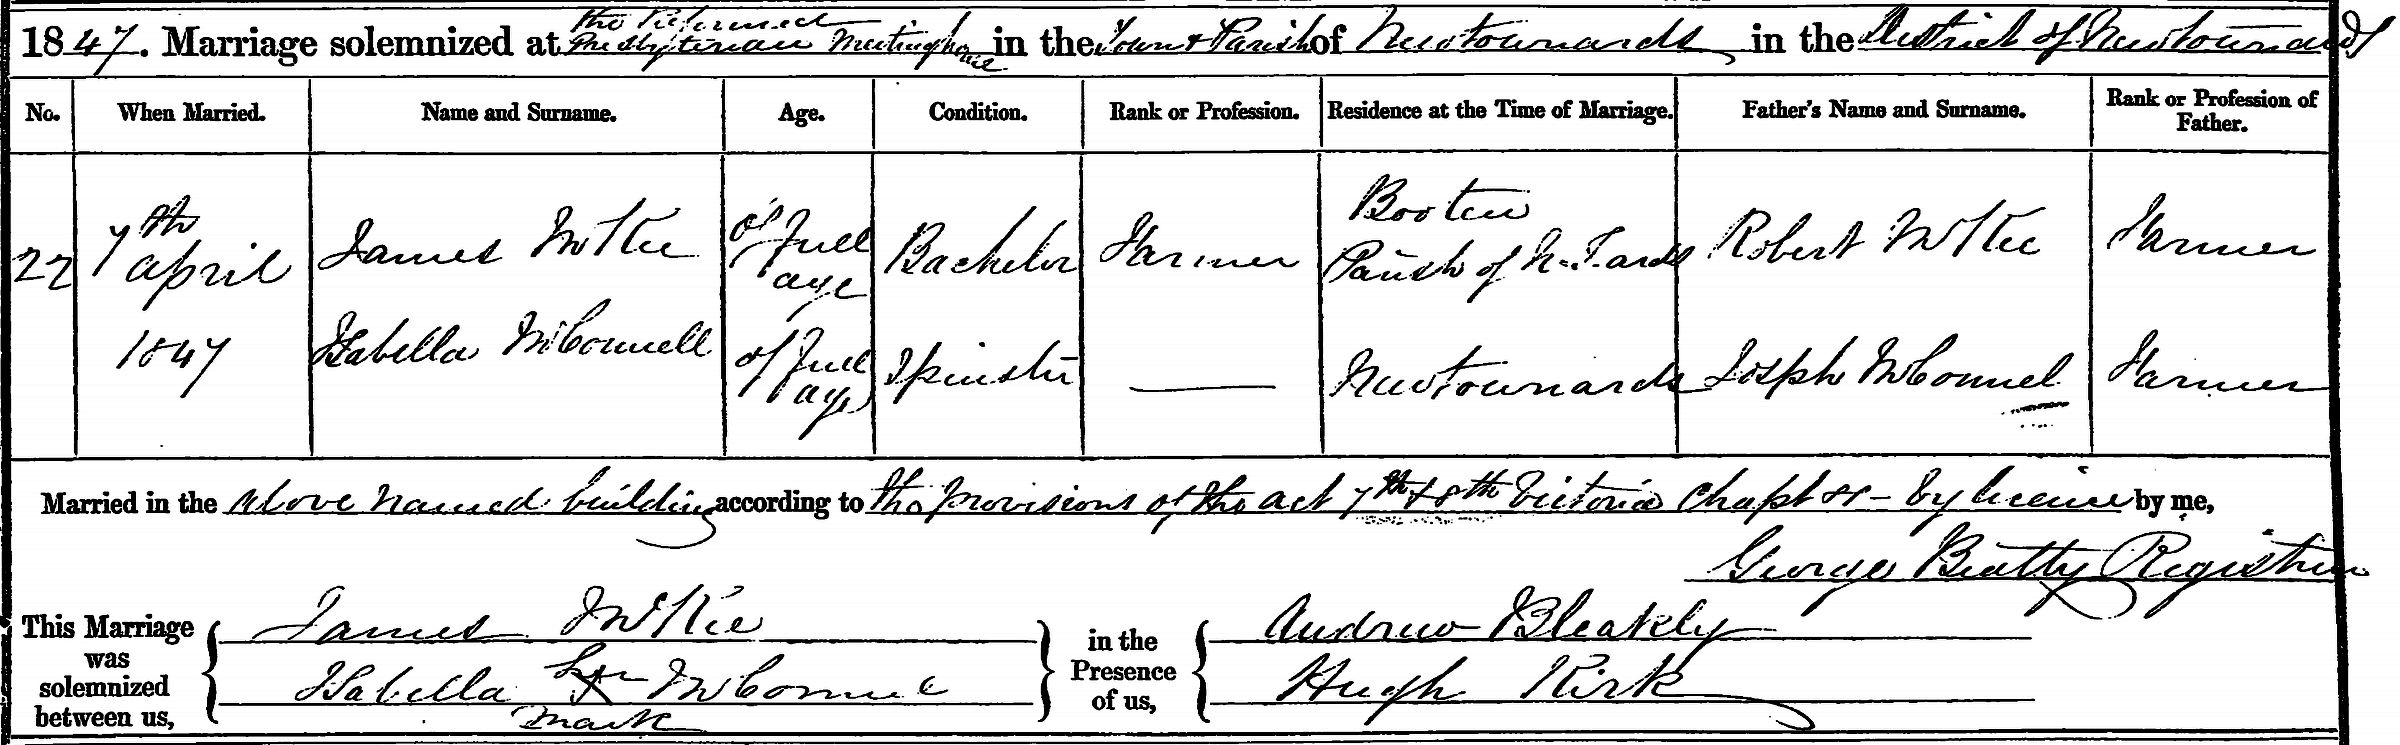 1847. Marriage solemnized at the Reformed Presbyterian Meetinghouse in the Town & Parish of Newtownards in the District of Newtownards
No. When Married. Name and Surname. Age. Condition. Rank or Profession. Residence at the Time of Marriage. Father's Name and Surname. Rank or Profession of Father.
22 7th april 1847 James McKee of Full age Bachelor Farmer Booten Parish of N. T. ards Robert McKee Farmer
Isabella McConnell of Full age Spinster — Newtownards Joseph McConnel Farmer
Married in the above named building according to the provisions of the act 7th & 8th Victoria Chapt 81 - by licence by me,
George Beatty Registrar
This Marriage was solemnized between us, James McKee in the Presence of us, Andrew Bleakly
Isabella her X mark McConnel Hugh Kirk